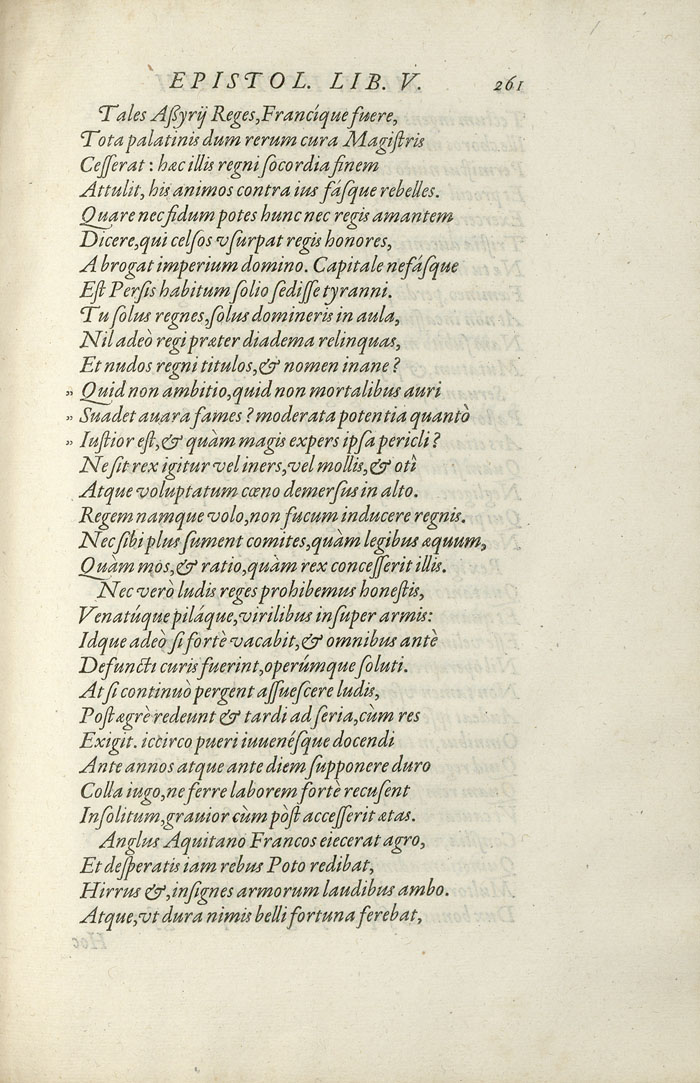 EPISTOL. LIB. V. 261
Tales Aſſyrij Reges, Francíque fuere,
Tota palatinis dum rerum cura Magiſtris
Ceſſerat : hæc illis regni ſocordia finem
Attulit, his animos contra ius fáſque rebelles.
Quare nec fidum potes hunc nec regis amantem
Dicere, qui celſos vſurpat regis honores,
Abrogat imperium domino. Capitale nefáſque
Eſt Perſis habitum ſolio ſediſſe tyranni.
Tu ſolus regnes, ſolus domineris in aula,
Nil adeò regi præter diadema relinquas,
Et nudos regni titulos, & nomen inane ?
„ Quid non ambitio, quid non mortalibus auri
„ Suadet auara fames ? moderata potentia quantò
„ Iuſtior eſt, & quàm magis expers ipſa pericli ?
Ne ſit rex igitur vel iners, vel mollis, & otî
Atque voluptatum cœno demerſus in alto.
Regem namque volo, non fucum inducere regnis.
Nec ſibi plus ſument comites, quàm legibus æquum,
Quàm mos, & ratio, quàm rex conceſſerit illis.
Nec verò ludis reges prohibemus honeſtis,
Venatúque piláque, virilibus inſuper armis:
Idque adeò ſi fortè vacabit, & omnibus antè
Defuncti curis fuerint, operúmque ſoluti.
At ſi continuò pergent aſſueſcere ludis,
Poſt ægrè redeunt & tardi ad ſeria, cùm res
Exigit. iccirco pueri iuuenéſque docendi
Ante annos atque ante diem ſupponere duro
Colla iugo, ne ferre laborem fortè recuſent
Inſolitum, grauior cùm pòſt acceſſerit ætas.
Anglus Aquitano Francos eiecerat agro,
Et deſperatis iam rebus Poto redibat,
Hirrus &, inſignes armorum laudibus ambo.
Atque, vt dura nimis belli fortuna ferebat,